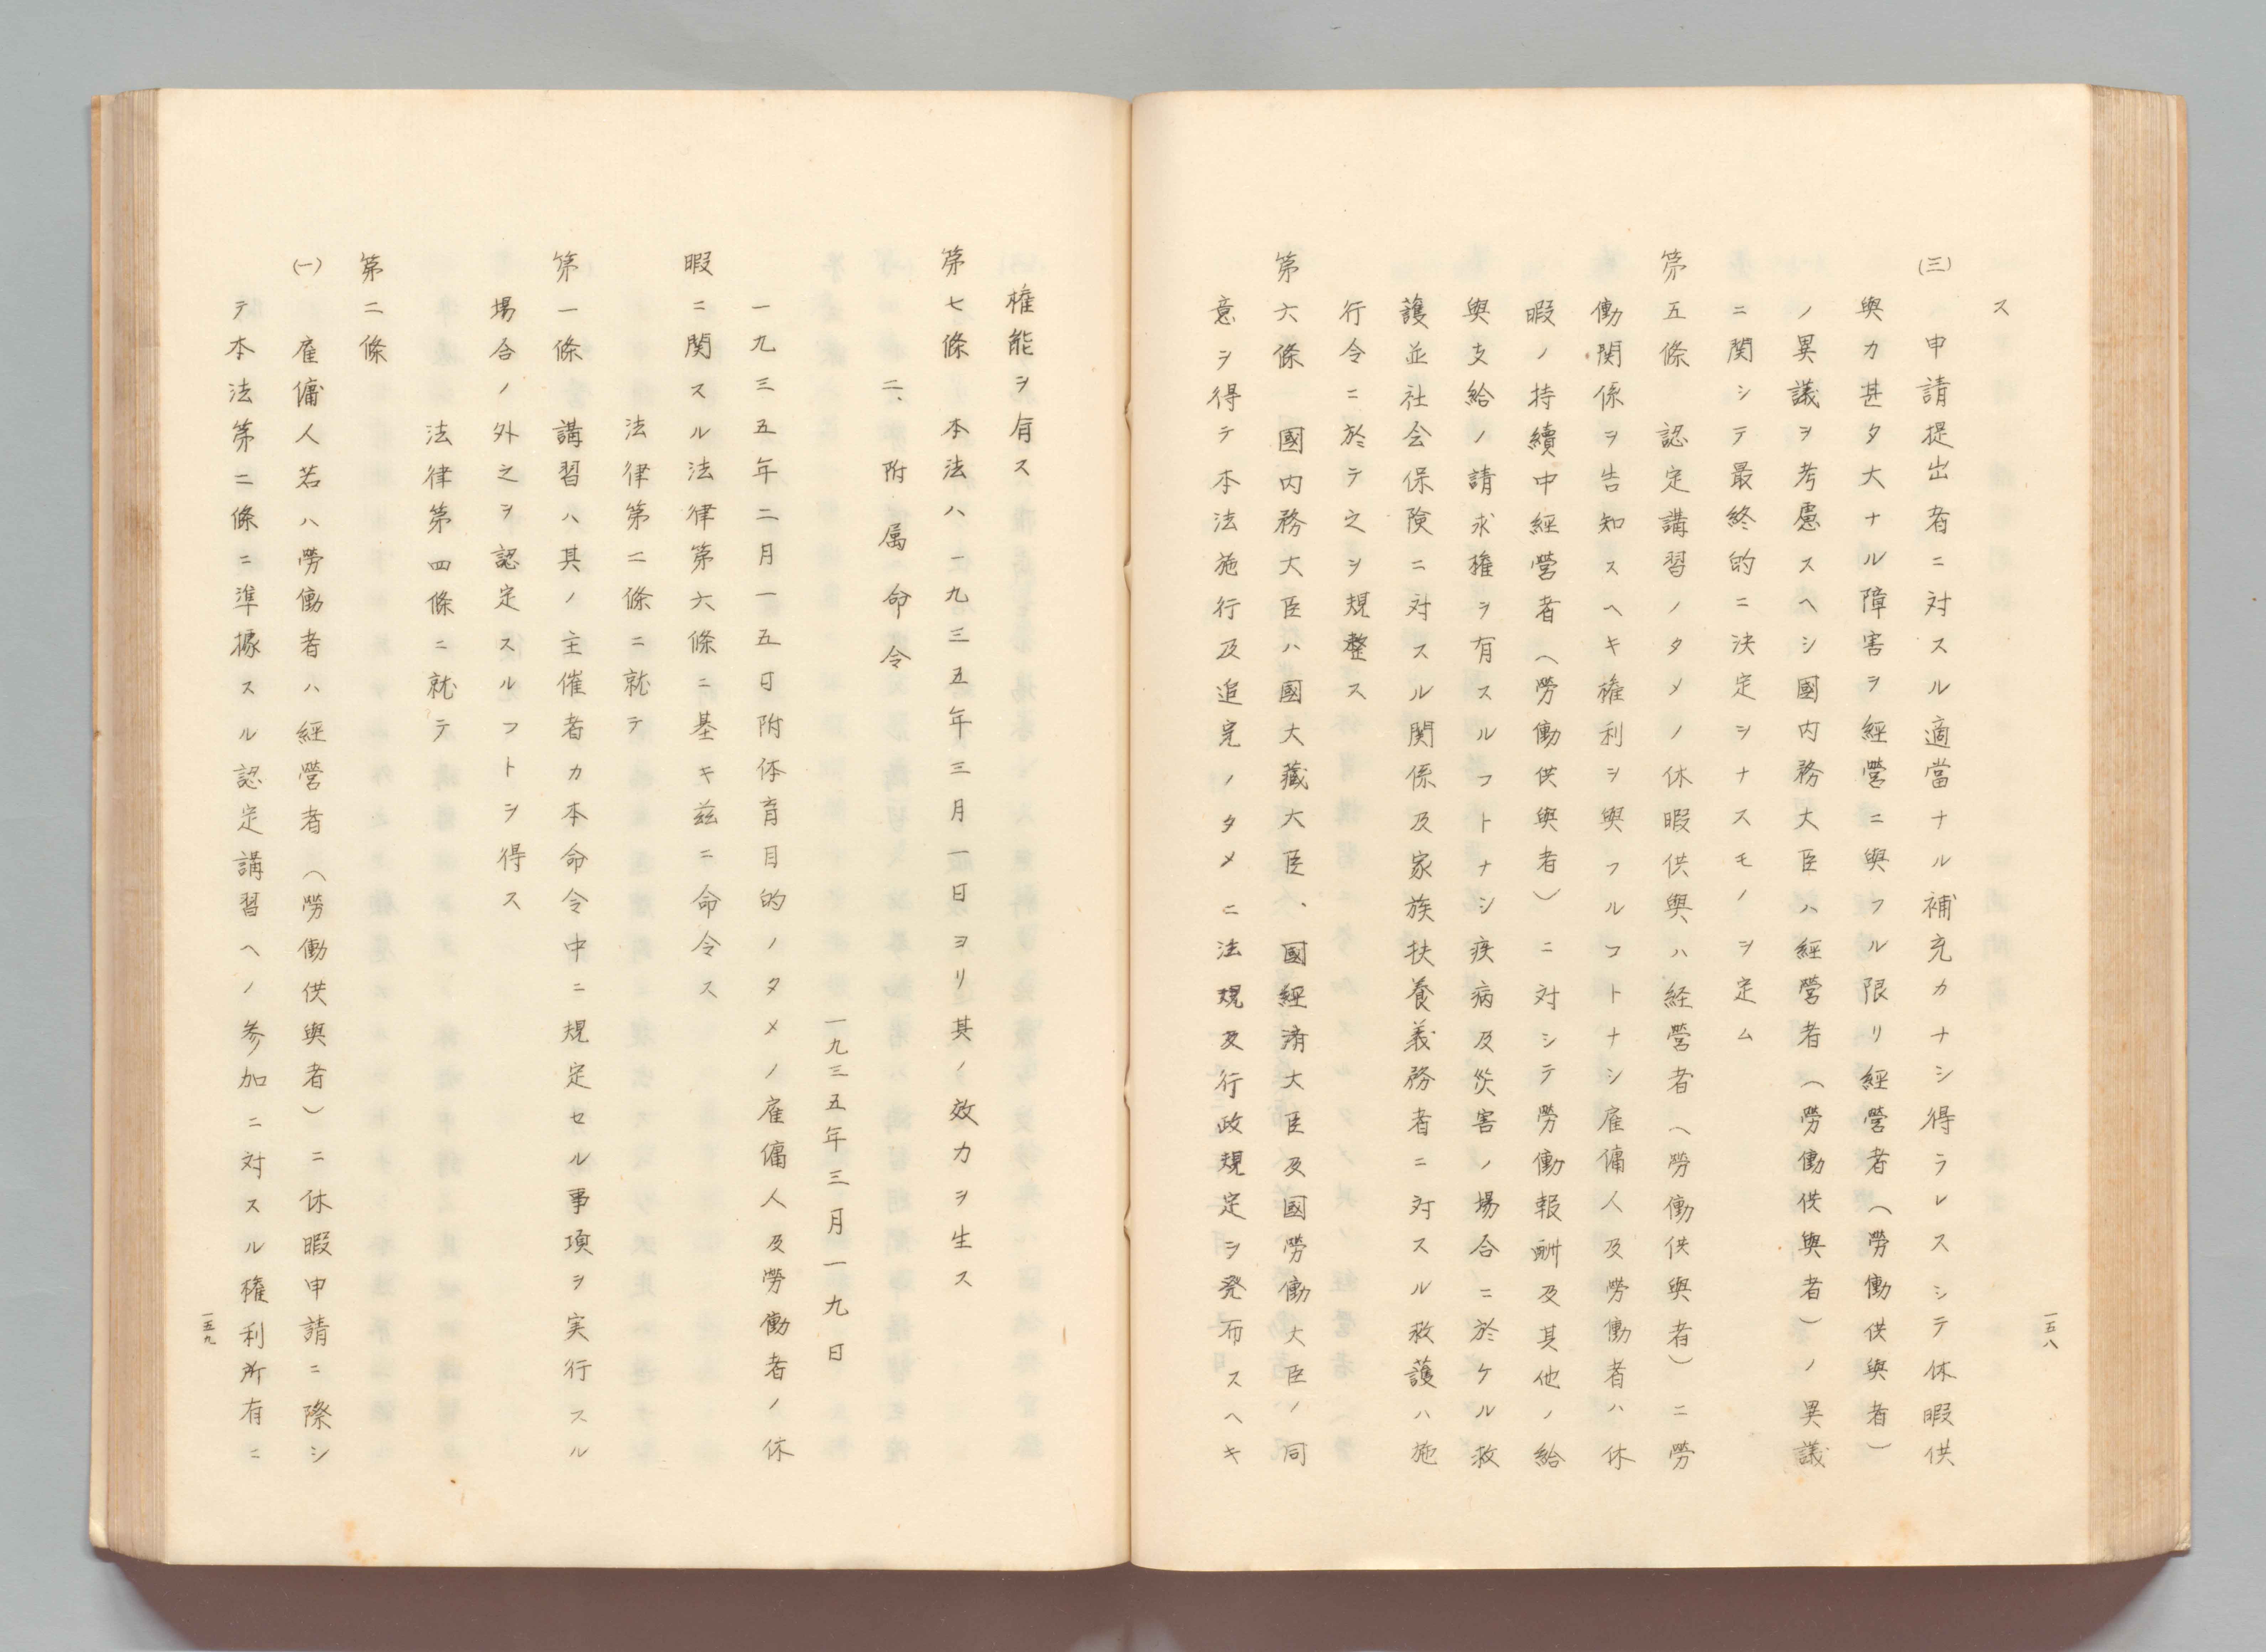 ス
(三) 申請提出者ニ対スル適當ナル補充カナシ得ラレスシテ休暇供
與カ甚タ大ナル障害ヲ經營ニ與フル限リ經營者(勞働供與者)
ノ異議ヲ考慮スヘシ國内務大臣ハ經營者(勞働供與者)ノ異議
ニ関シテ最終的ニ決定ヲナスモノヲ定ム
第五條 認定講習ノタメノ休暇供與ハ経営者(勞働供與者)ニ勞
働関係ヲ告知スヘキ権利ヲ與フルコトナシ雇傭人及勞働者ハ休
暇ノ持續中經營者(勞働供與者)ニ対シテ勞働報酬及其他ノ給
與支給ノ請求権ヲ有スルコトナシ疾病及災害ノ場合ニ於ケル救
護並社会保険ニ対スル関係及家族扶養義務者ニ対スル救護ハ施
行令ニ於テ之ヲ規整ス
第六條 國内務大臣ハ國大藏大臣、國經済大臣及國勞働大臣ノ同
意ヲ得テ本法施行及追完ノタメニ法規及行政規定ヲ発布スヘキ
一五八
権能ヲ有ス
第七條 本法ハ一九三五年三月一日ヨリ其ノ效力ヲ生ス
二、附属命令
一九三五年三月一九日
一九三五年二月一五日附体育目的ノタメノ雇傭人及勞働者ノ休
暇ニ関スル法律第六條ニ基キ茲ニ命令ス
法律第二條ニ就テ
第一條 講習ハ其ノ主催者カ本命令中ニ規定セル事項ヲ実行スル
場合ノ外之ヲ認定スルコトヲ得ス
法律第四條ニ就テ
第二條
(一) 雇傭人若ハ勞働者ハ經營者(勞働供與者)ニ休暇申請ニ際シ
テ本法第二條ニ準據スル認定講習ヘノ参加ニ対スル権利所有ニ
一五九